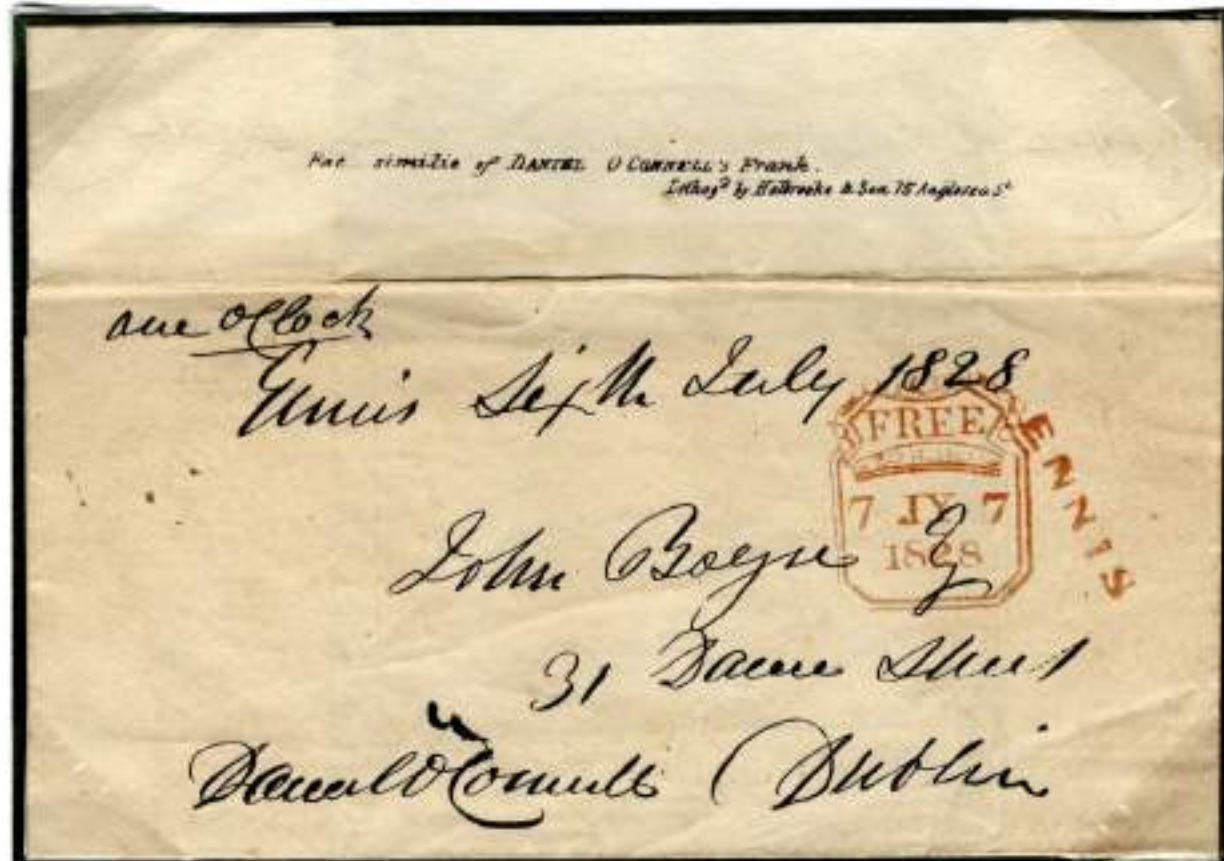 Fac similie of DANIEL O'CONNELL's Frank.
Lithogd by Holbrooke & Son 75 Anglesea St
one oClock
Ennis Sixth July 1828
FREE
7 JY 7
1828
ENNIS
John Boyne
31 Dame Street
Daniel O'Connell Dublin